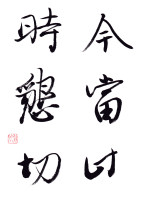 今當此
時懇切